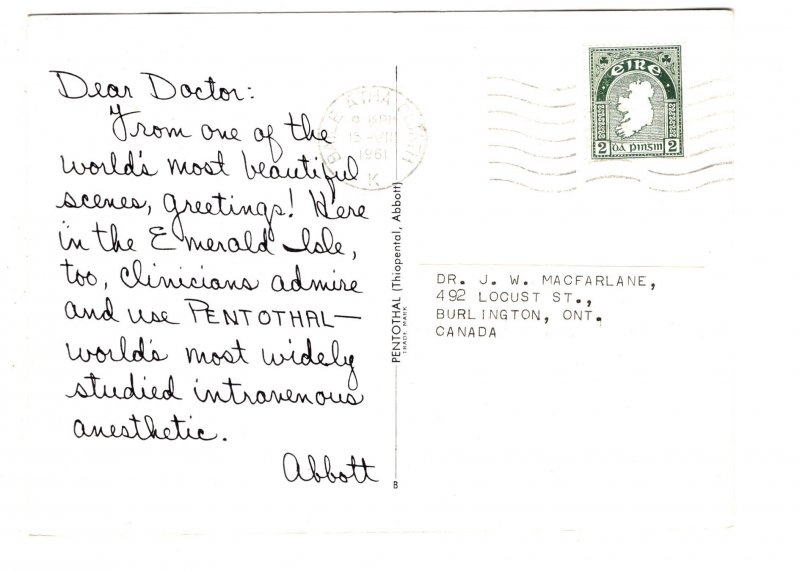 Dear Doctor:
From one of the
world's most beautiful
scenes, greetings! Here
in the Emerald Isle,
too, clinicians admire
and use PENTOTHAL—
world's most widely
studied intravenous
anesthetic.
Abbott
PENTOTHAL (Thiopental, Abbott)
TRADE MARK
B
1961
K
éire
2 dá pingin 2
DR. J. W. MACFARLANE,
492 LOCUST ST.,
BURLINGTON, ONT.
CANADA